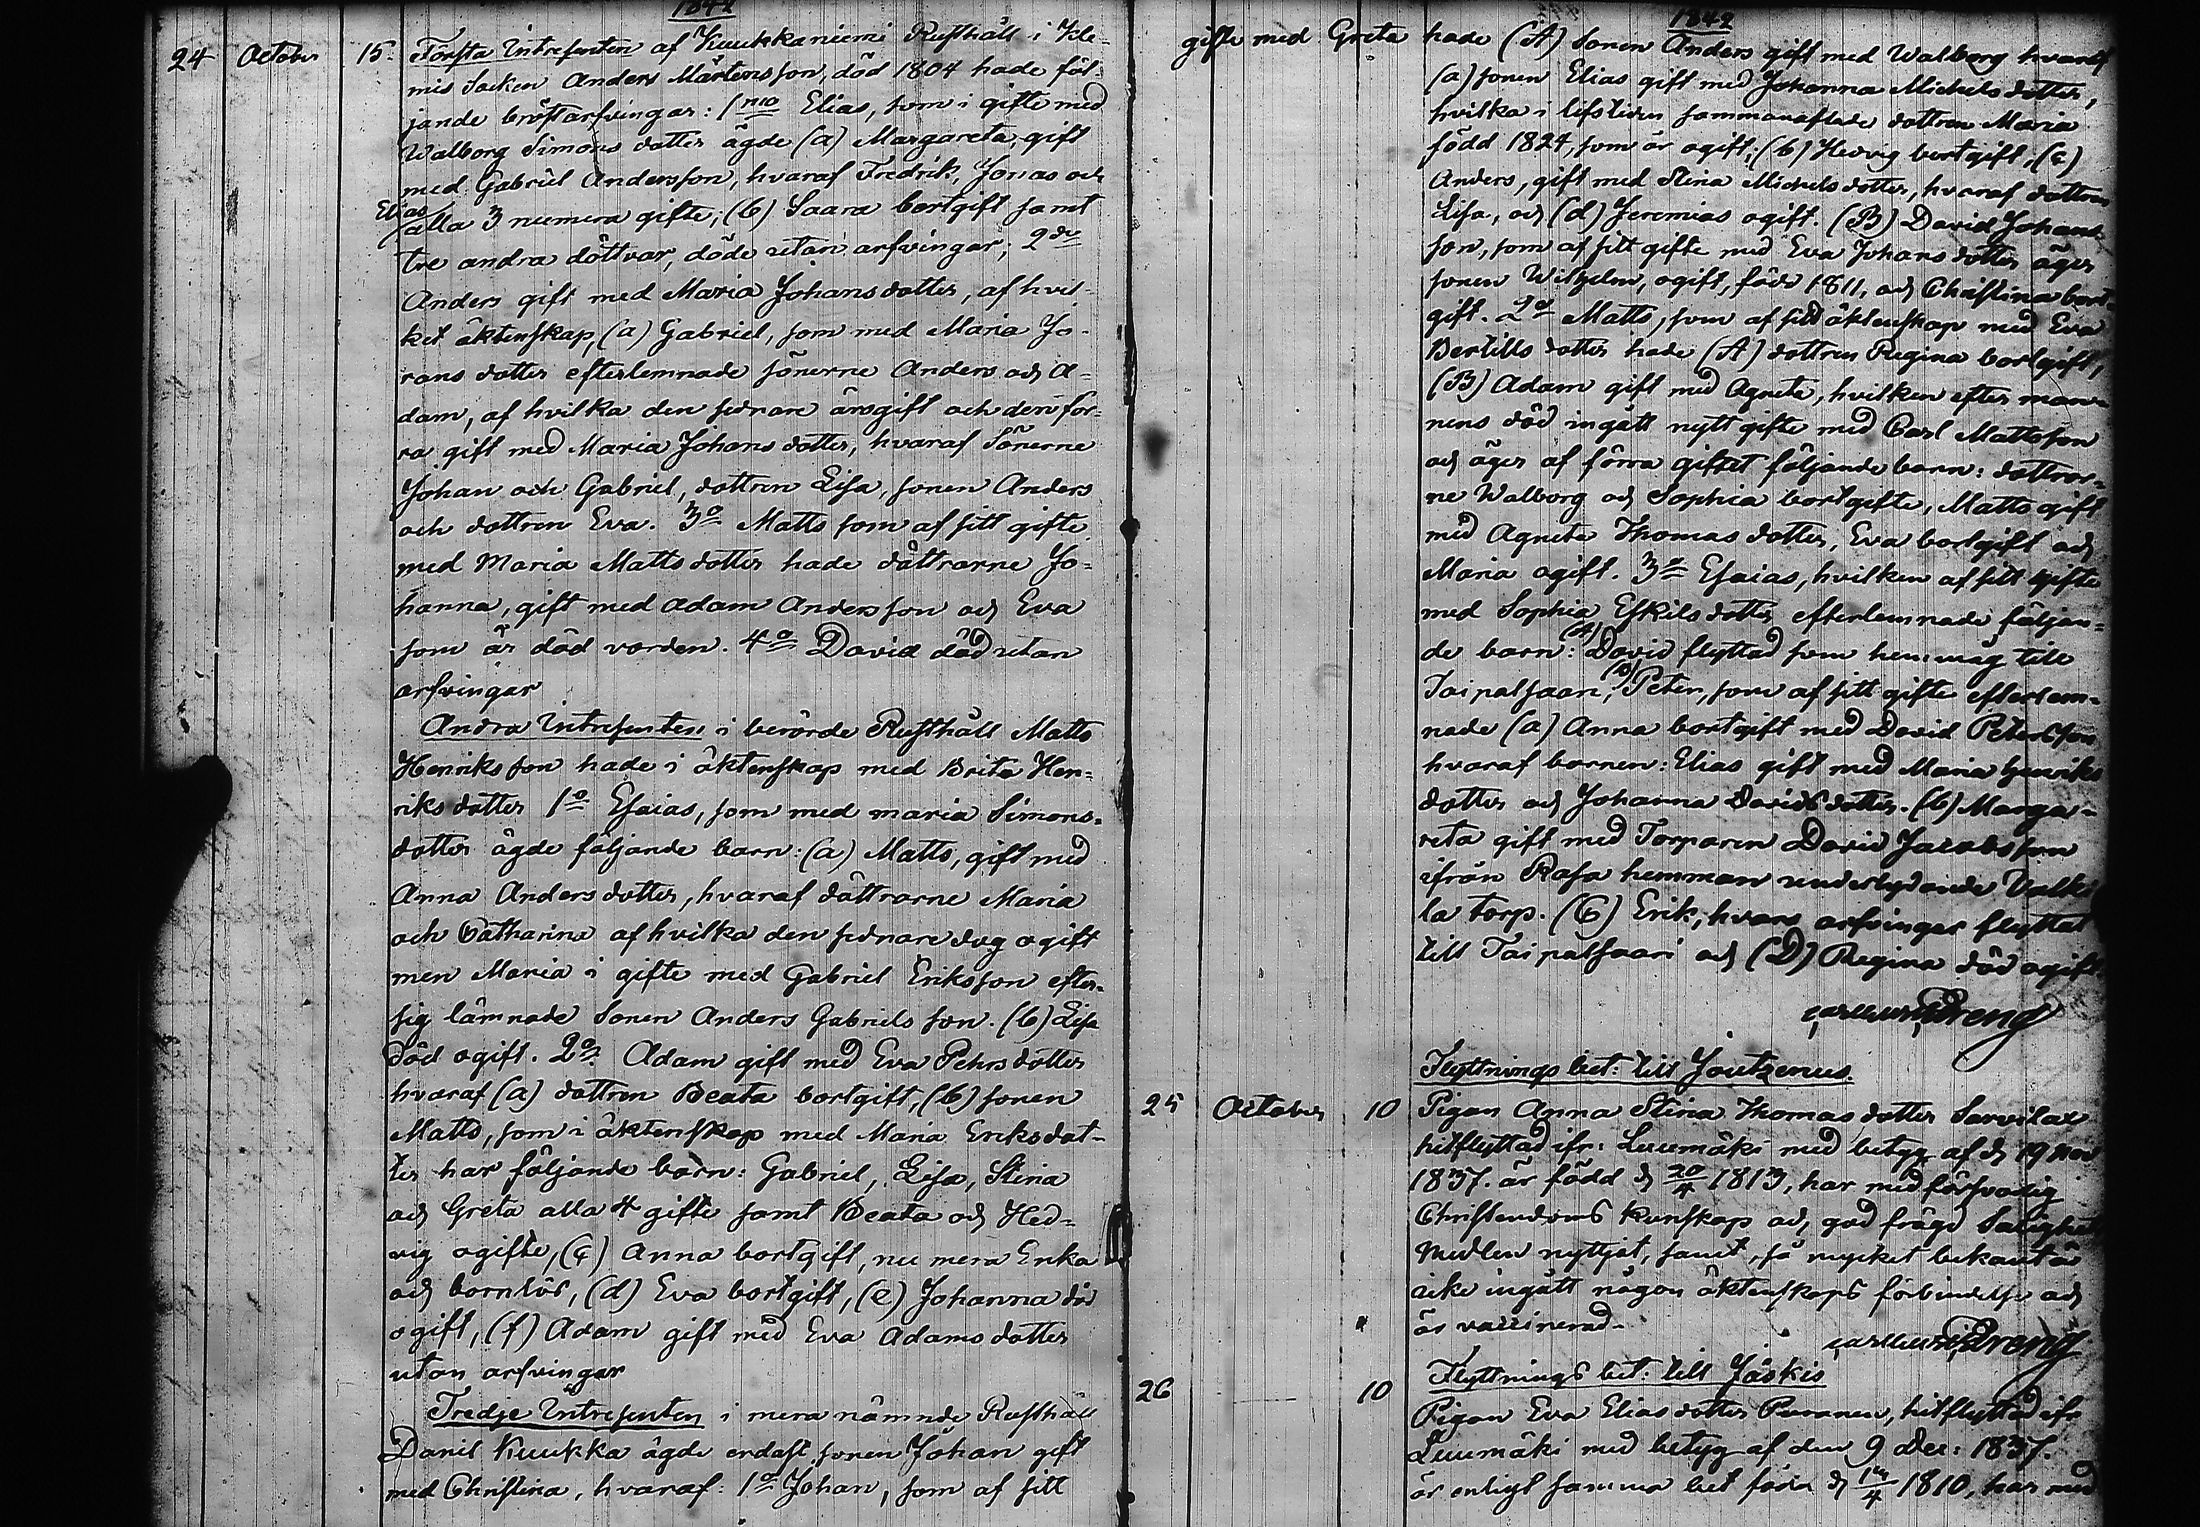 1842
24 October 15. Första Intressenten af Kuukkaniemi Rusthåll i Kle-
mis Socken Anders Mårtensson, död 1804 hade föl-
jande bröstarfvingar: 1mo Elias, som i gifte med
Walborg Simons dotter ägde (a) Margareta, gift
med Gabriel Andersson, hvaraf Fredrik, Jonas och
Elias alla 3 numera gifte, (b) Saara bortgift samt
tre andra döttrar, döde utan arfvingar; 2do
Anders gift med Maria Johansdotter, af hvil-
ket äktenskap, (a) Gabriel, som med Maria Jö-
rans dotter efterlemnade sönerne Anders och A-
dam, af hvilka den sednare är ogift och den för-
ra gift med Maria Johansdotter, hvaraf Sönerne
Johan och Gabriel, dottren Lisa, sonen Anders
och dottren Eva. 3o Matts som af sitt gifte
med Maria Mattsdotter hade döttrarne Jo-
hanna, gift med Adam Andersson och Eva
som är död vorden. 4o David död utan
arfvingar
Andra Intressenten i berörde Rusthåll Matts
Henriksson hade i äktenskap med Brita Hen-
riksdotter 1o Esaias, som med Maria Simons-
dotter ägde följande barn: (a) Matts, gift med
Anna Andersdotter, hvaraf döttrarne Maria
och Catharina af hvilka den sednare dog ogift
men Maria i gifte med Gabriel Eriksson efter
sig lämnade Sonen Anders Gabrielsson. (b) Lisa
död ogift. 2o Adam gift med Eva Pehrsdotter
hvaraf (a) dottren Beata bortgift, (b) sonen
Matts, som i äktenskap med Maria Eriksdot-
ter har följande barn: Gabriel, Lisa, Stina
och Greta alla 4 gifte samt Beata och Hed-
vig ogifte, (c) Anna bortgift, nu mera Enka
och barnlös, (d) Eva bortgift, (e) Johanna död
ogift, (f) Adam gift med Eva Adamsdotter
utan arfvingar
Tredje Intressenten i mera nämnde Rusthåll
Daniel Kuukka ägde endast sonen Johan gift
med Christina, hvaraf: 1o Johan, som af sitt
1842
gifte med Greta hade (A) Sonen Anders gift med Walborg hvaraf
(a) sonen Elias gift med Johanna Michelsdotter,
hvilka i lifstiden sammanaflade dottren Maria
född 1824, som är ogift; (b) Hedvig bortgift, (c)
Anders, gift med Stina Michelsdotter, hvaraf dottren
Lisa, och (d) Jeremias ogift. (B) David Johans-
son, som af sitt gifte med Eva Johansdotter äger
sonen Wilhelm, ogift, född 1811, och Christina bort-
gift. 2o Matts, som af sitt äktenskap med Eva
Bertillsdotter hade (A) dottren Regina bortgift,
(B) Adam gift med Agneta, hvilken efter man-
nens död ingått nytt gifte med Carl Mattsson
och äger af förra giftet följande barn: döttrar-
ne Walborg och Sophia bortgifte, Matts gift
med Agneta Thomasdotter, Eva bortgift och
Maria ogift. 3o Esaias, hvilken af sitt gifte
med Sophia Eskilsdotter efterlemnade följan-
de barn: (A) David flyttad som hemmåg till
Taipalsaari, (B) Peter, som af sitt gifte efterlem-
nade (a) Anna bortgift med David Petersson
hvaraf barnen: Elias gift med Maria Henriks
dotter och Johanna Davidsdotter. (b) Marga-
reta gift med Torparen David Jacobsson
ifrån Rasa hemman underlydande Valki-
la torp. (C) Erik, hvars arfvingar flyttat
till Taipalsaari och (D) Regina död ogift.
Flyttnings bet: till Joutzenus.
25 October 10 Pigan Anna Stina Thomasdotter Sarvilax
hitflyttad ifr: Luumäki med betyg af d 19 Nov
1837. är född d 20/4 1813, har med försvarlig
Christendoms kunskap och god frägd Salighets
medlen nyttjat, samt, så mycket bekant är
icke ingått någon äktenskaps förbindelse och
är vaccinerad.
Flyttnings bet: till Jäskis
26 10 Pigan Eva Eliasdotter Puranen, hitflyttad ifr
Luumäki med betyg af den 9 Dec: 1837.
är enligt samma bet född d 1810, har med